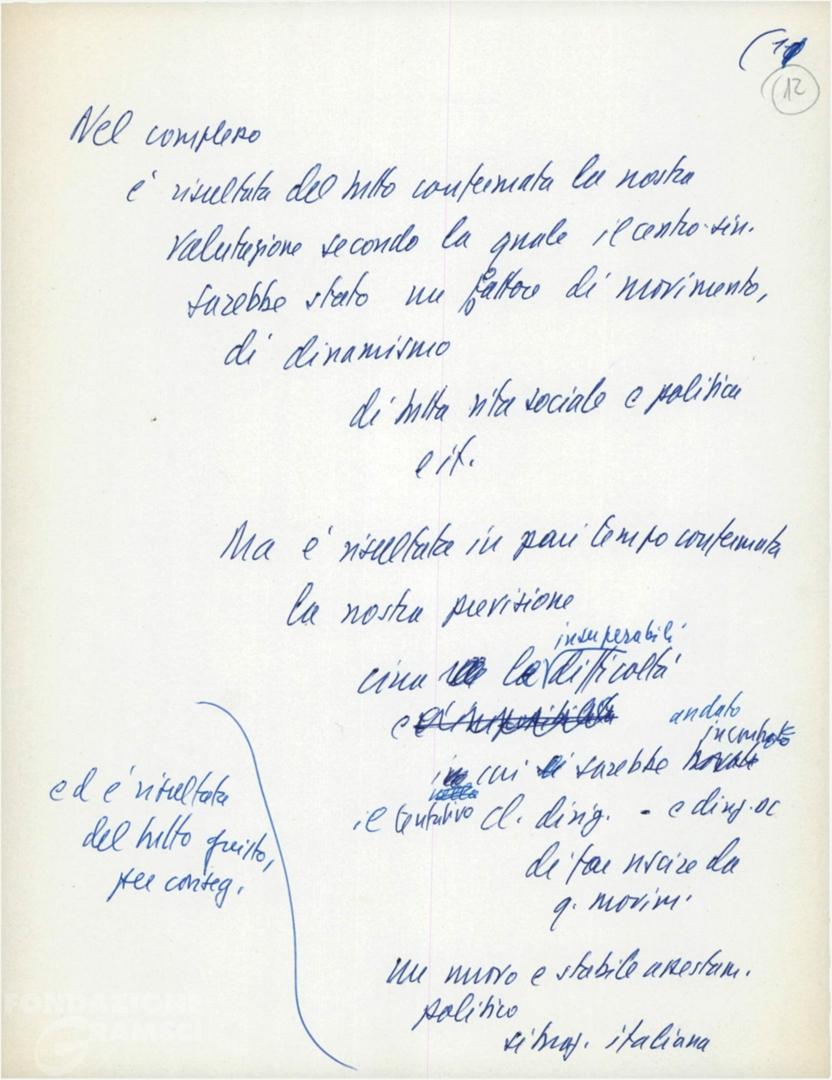 12
Nel complesso
è risultata del tutto confermata la nostra
valutazione secondo la quale il centro-sin.
sarebbe stato un fattore di movimento,
di dinamismo
di tutta vita sociale e politica
e it.
Ma è risultata in pari tempo confermata
la nostra previsione
insuperabili
circa le difficoltà
e andato
in cui sarebbe incontro
il tentativo cl. dirig. - e dirig. DC
di far uscire da
q. movim.
un nuovo e stabile assestam.
politico
situaz. italiana
ed è risultata
del tutto giusto,
per conseg.
FONDAZIONE
GRAMSCI